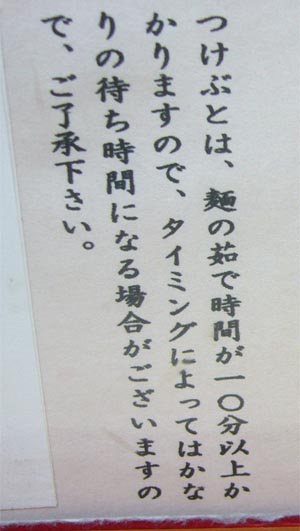 つけぶとは、麺の茹で時間が一〇分以上か
かりますので、タイミングによってはかな
りの待ち時間になる場合がございますの
で、ご了承下さい。